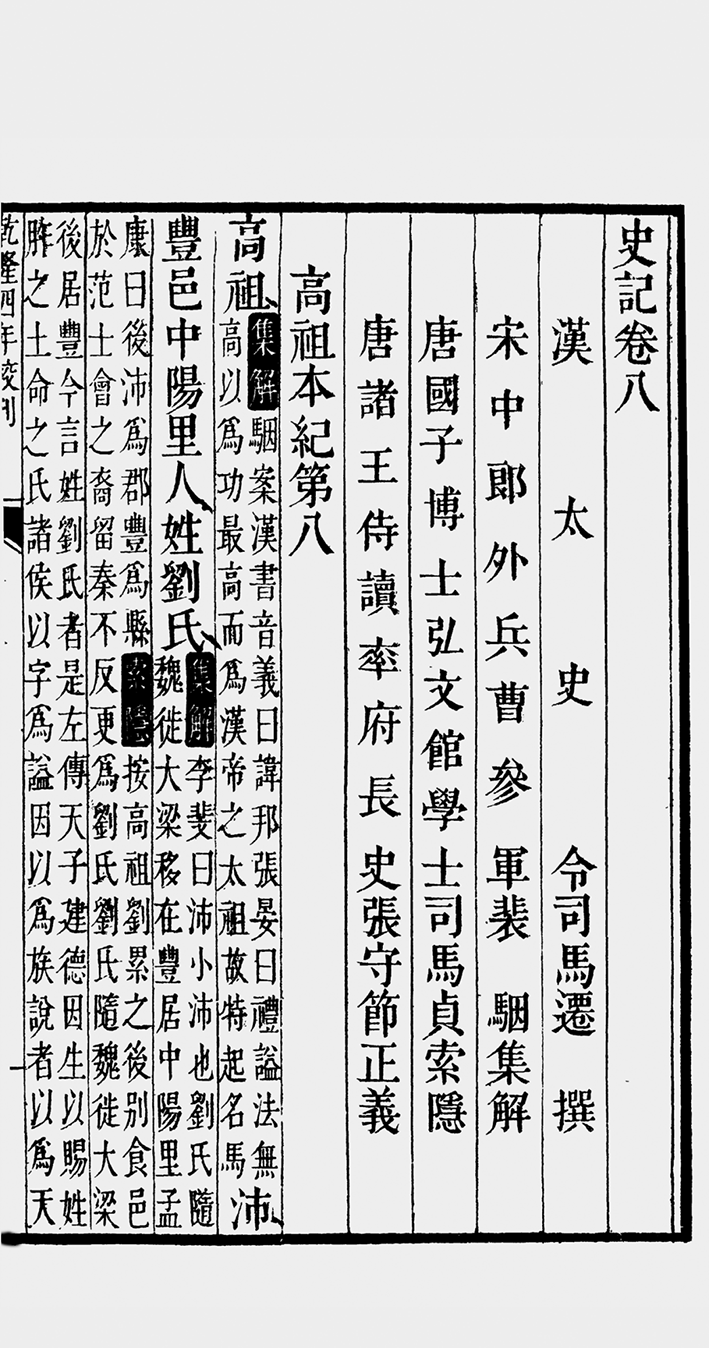 史記卷八
漢太史令司馬遷撰
宋中郎外兵曹參軍裴駰集解
唐國子博士弘文館學士司馬貞索隱
唐諸王侍讀率府長史張守節正義
高祖本紀第八
高祖集解駰案漢書音義曰諱邦張晏曰禮謚法無
高以為功最高而為漢帝之太祖故特起名焉沛
豐邑中陽里人姓劉氏集解李斐曰沛小沛也劉氏隨
魏徙大梁移在豐居中陽里孟
康曰後沛為郡豐為縣索隱按高祖劉累之後別食邑
於范士會之裔留秦不反更為劉氏劉氏隨魏徙大梁
後居豐今言姓劉氏者是左傳天子建德因生以賜姓
胙之土命之氏諸侯以字為謚因以為族說者以為天
乾隆四年校刊